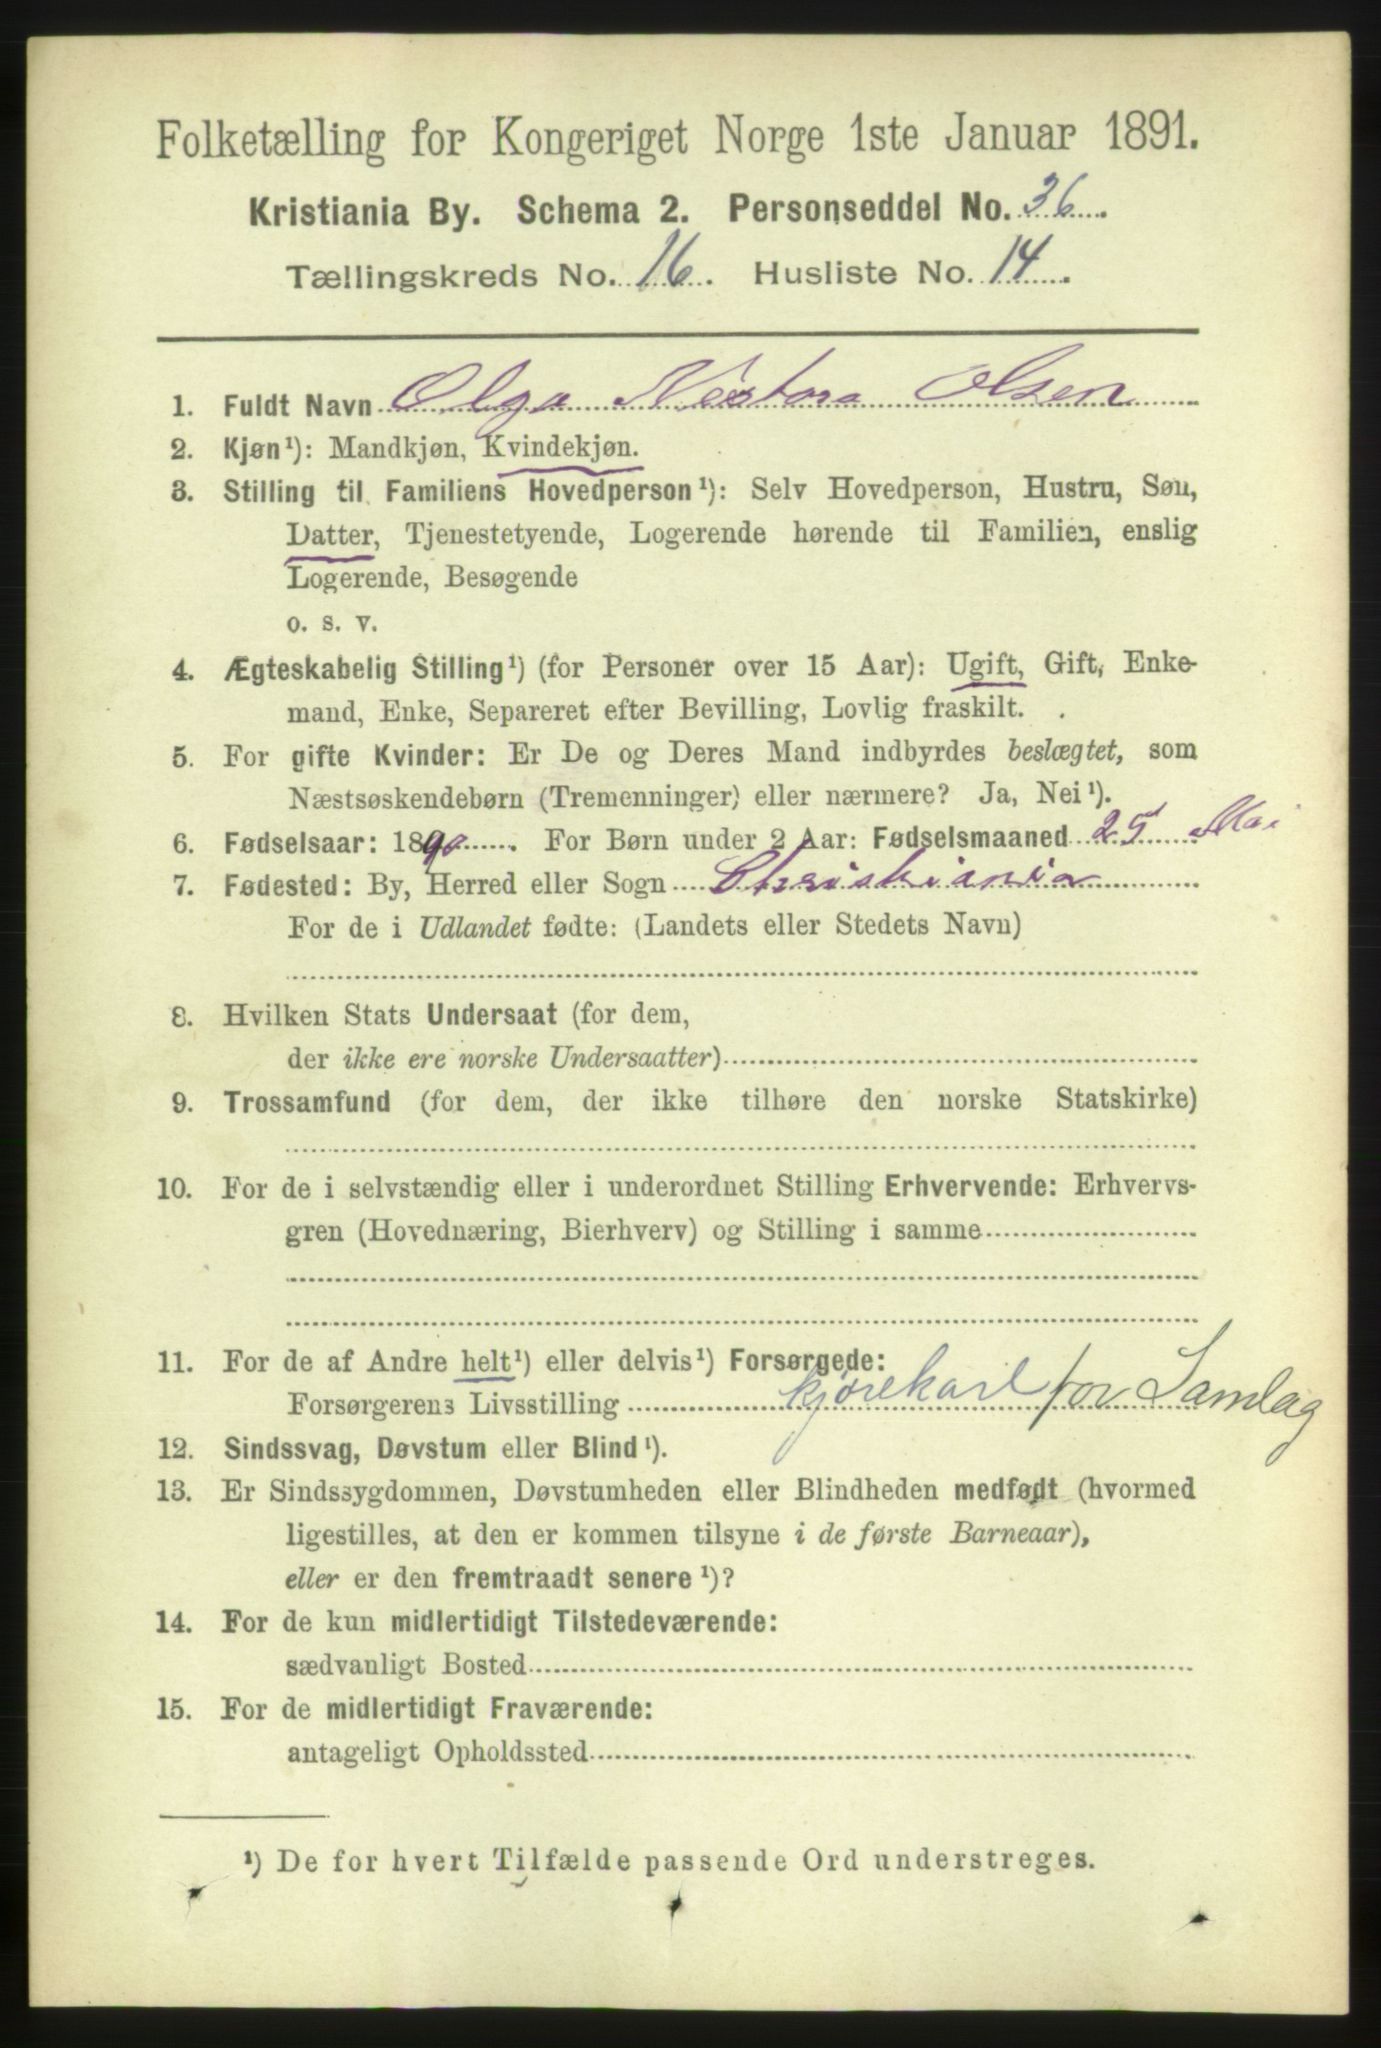 Folketælling for Kongeriget Norge 1ste Januar 1891.
Kristiania By. Schema 2. Personseddel No. 36.
Tællingskreds No. 16. Husliste No. 14.
1. Fuldt Navn Olga Olsen
2. Kjøn¹): Mandkjøn, Kvindekjøn.
3. Stilling til Familiens Hovedperson¹): Selv Hovedperson, Hustru, Søn,
Datter, Tjenestetyende, Logerende hørende til Familien, enslig
Logerende, Besøgende
o. s. v.
4. Ægteskabelig Stilling¹) (for Personer over 15 Aar): Ugift, Gift, Enke-
mand, Enke, Separeret efter Bevilling, Lovlig fraskilt.
5. For gifte Kvinder: Er De og Deres Mand indbyrdes beslægtet, som
Næstsøskendebørn (Tremenninger) eller nærmere? Ja, Nei¹).
6. Fødselsaar: 1890. For Børn under 2 Aar: Fødselsmaaned 25 Mai
7. Fødested: By, Herred eller Sogn Christiania
For de i Udlandet fødte: (Landets eller Stedets Navn)
8. Hvilken Stats Undersaat (for dem,
der ikke ere norske Undersaatter)
9. Trossamfund (for dem, der ikke tilhøre den norske Statskirke)
10. For de i selvstændig eller i underordnet Stilling Erhvervende: Erhvervs-
gren (Hovednæring, Bierhverv) og Stilling i samme
11. For de af Andre helt¹) eller delvis¹) Forsørgede:
Forsørgerens Livsstilling kjørekarl for Samlag
12. Sindssvag, Døvstum eller Blind¹).
13. Er Sindssygdommen, Døvstumheden eller Blindheden medfødt (hvormed
ligestilles, at den er kommen tilsyne i de første Barneaar),
eller er den fremtraadt senere¹)?
14. For de kun midlertidigt Tilstedeværende:
sædvanligt Bosted
15. For de midlertidigt Fraværende:
antageligt Opholdssted
¹) De for hvert Tilfælde passende Ord understreges.